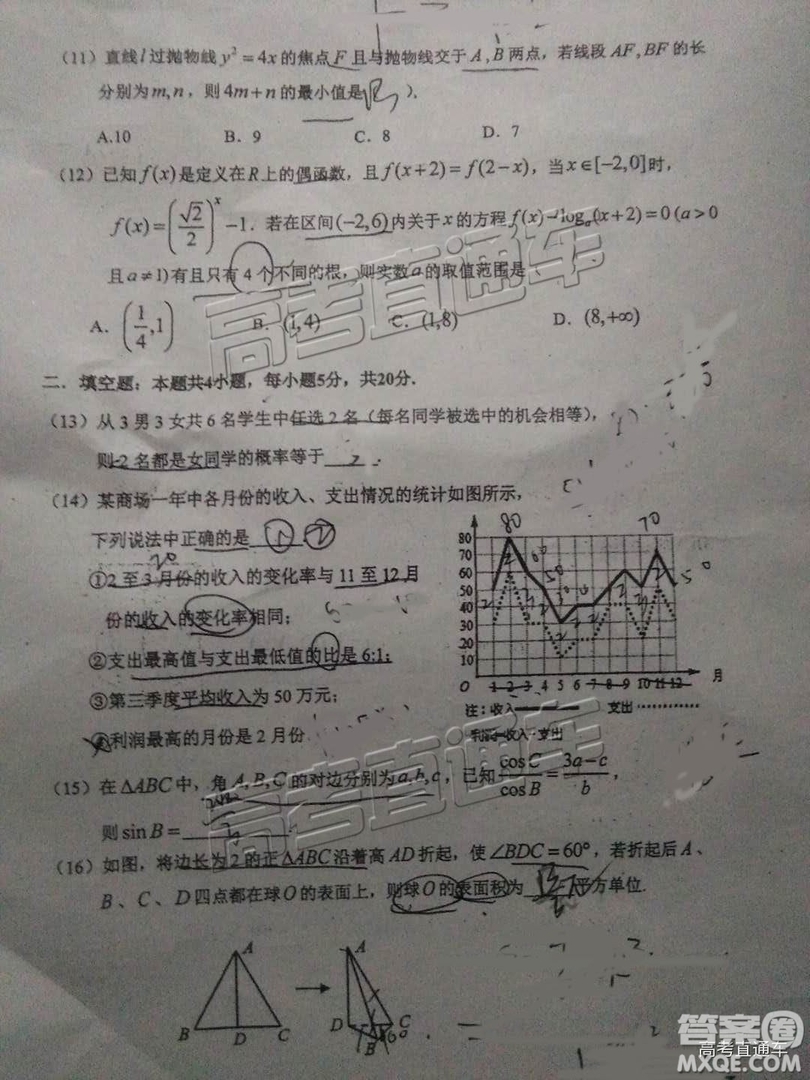 (11) 直线l过抛物线y²=4x的焦点F且与抛物线交于A,B两点，若线段AF,BF的长
分别为m,n，则4m+n的最小值是( ).
A.10 B. 9 C. 8 D. 7
(12) 已知f(x)是定义在R上的偶函数，且f(x+2)=f(2-x)，当x∈[-2,0]时，
f(x)=(√2/2)^x-1．若在区间(-2,6)内关于x的方程f(x)-logₐ(x+2)=0(a>0
且a≠1)有且只有4个不同的根，则实数a的取值范围是
A. (1/4,1) B. (1,4) C. (1,8) D. (8,+∞)
二．填空题：本题共4小题，每小题5分，共20分.
(13) 从3男3女共6名学生中任选2名（每名同学被选中的机会相等），
则2名都是女同学的概率等于
(14) 某商场一年中各月份的收入、支出情况的统计如图所示，
下列说法中正确的是
①2至3月份的收入的变化率与11至12月
份的收入的变化率相同；
②支出最高值与支出最低值的比是6:1；
③第三季度平均收入为50万元；
④利润最高的月份是2月份
80 70
80
70
60
50
40
30
20
10
O 1 2 3 4 5 6 7 8 9 10 11 12 月
注：收入 支出
利润=收入-支出
(15) 在△ABC中，角A,B,C的对边分别为a,b,c，已知cosC/cosB=(3a-c)/b，
则sinB=
(16) 如图，将边长为2的正△ABC沿着高AD折起，使∠BDC=60°，若折起后A、
B、C、D四点都在球O的表面上，则球O的表面积为 平方单位.
A B D C
A D C B
高考直通车
答案圈
高考直通车
MXQE.COM